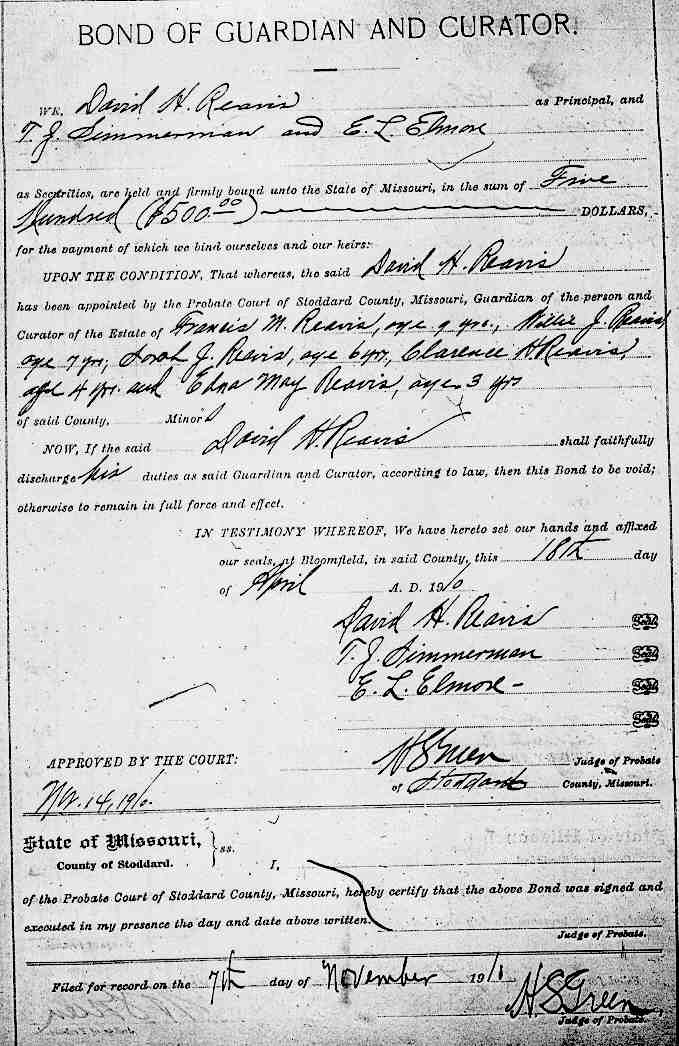 BOND OF GUARDIAN AND CURATOR.
WE, David H. Reavis as Principal, and
T. J. Simmerman and E. L. Elmore
as Securities, are held and firmly bound unto the State of Missouri, in the sum of Five
Hundred ($500.00) DOLLARS,
for the payment of which we bind ourselves and our heirs:
UPON THE CONDITION, That whereas, the said David H. Reavis
has been appointed by the Probate Court of Stoddard County, Missouri, Guardian of the person and
Curator of the Estate of Francis M. Reavis, age 9 yrs., Willie J. Reavis,
age 7 yrs, J. Reavis, age 6 yrs., Clarence H Reavis,
age 4 yrs. and Edna May Reavis, age 3 yrs
of said County, Minors
NOW, If the said David H. Reavis shall faithfully
discharge his duties as said Guardian and Curator, according to law, then this Bond to be void;
otherwise to remain in full force and effect.
IN TESTIMONY WHEREOF, We have hereto set our hands and affixed
our seals, at Bloomfield, in said County, this 18th day
of April A. D. 1910
David H. Reavis Seal
T. J. Simmerman Seal
E. L. Elmore - Seal
Seal
APPROVED BY THE COURT: H S Green Judge of Probate
of Stoddard County, Missouri.
Nov. 14, 1910.
State of Missouri, } ss.
County of Stoddard. I,
of the Probate Court of Stoddard County, Missouri, hereby certify that the above Bond was signed and
executed in my presence the day and date above written.
Judge of Probate.
Filed for record on the 7th day of November 1910
H. S. Green
Judge of Probate.